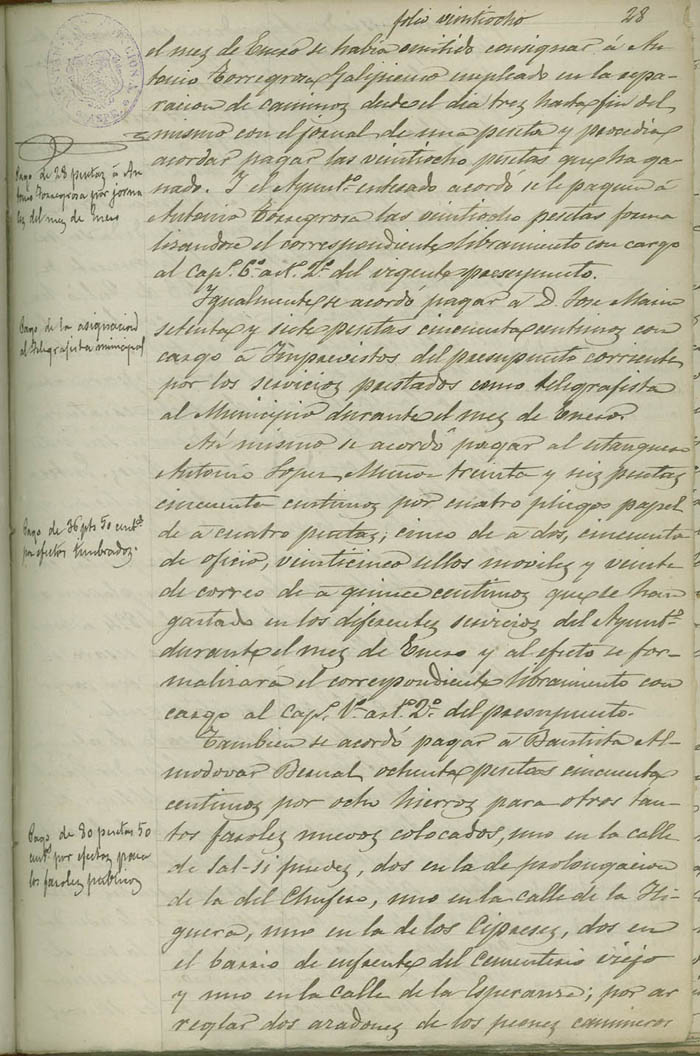 folio veintiocho 28
el mez de Enero se había omitido consignar á An-
tonio Torregrosa Galipienso empleado en la repa-
racion de caminoz desde el dia trez hasta fin del
mismo con el jornal de una peseta y procedia
acordar pagar las veintiocho pesetas que ha ga-
nado. Y el Ayuntº. enterado acordó se le paguen á
Antonio Torregrosa las veintiocho pesetas forma
lizandose el correspondiente libramiento con cargo
al capº. 6º. artº. 2º. del vigente presupuesto.
Igualmente se acordó pagar á D. Jose Maria
setenta y siete pesetas cincuenta centimoz con
cargo á Imprevistos del presupuesto corriente
por los servicioz prestados como telegrafista
al Municipio durante el mez de Enero.
Asi mismo se acordó pagar al estanquero
Antonio Lopez Muñoz treinta y seiz pesetaz
cincuenta centimoz por cuatro pliegos papel
de á cuatro pesetaz; cinco de á dos, cincuenta
de oficio, veinticinco sellos moviles y veinte
de correo de á quince centimoz que se han
gastado en los diferentez servicioz del Ayuntº.
durante el mez de Enero y al efecto se for-
malizará el correspondiente libramiento con
cargo al Capº. 1º. artº. 2º. del presupuesto.
Tambien se acordó pagar á Bautista Al-
modovar Bernal ochenta pesetas cincuenta
centimoz por ocho hierroz para otros tan-
tos farolez nuevoz colocados, uno en la calle
de Sal-si puedez, dos en la de prolongacion
de la del Chufero, uno en la calle de la Hi-
guera, uno en la de los Cipresez, dos en
el barrio de enfrente del cementerio viejo
y uno en la calle de la Esperanza; por ar
reglar dos azadonez de los peonez camineros
Pago de 28 pesetaz á An-
tonio Torregrosa por jorna
lez del mez de Enero
Pago de la asignacion
al telegrafista municipal
Pago de 36 pts 50 centº.
por efectos timbradoz.
Pago de 80 pesetas 50
centº. por efectoz para
los farolez publicoz